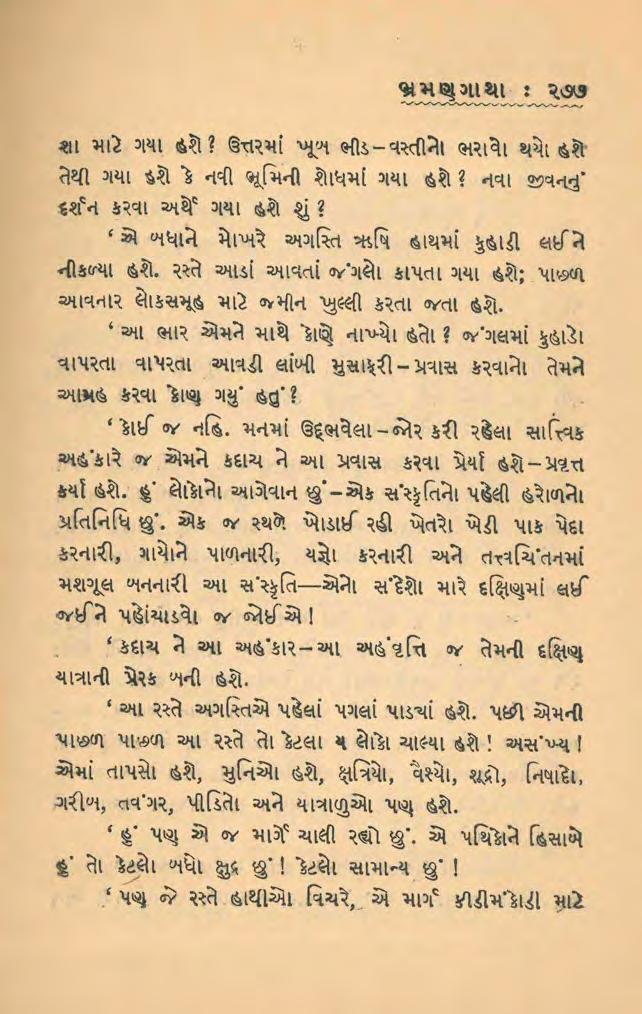 ભ્રમણગાથા : ૨૭૭
શા માટે ગયા હશે? ઉત્તરમાં ખૂબ ભીડ–વસ્તીનો ભરાવો થયો હશે
તેથી ગયા હશે કે નવી ભૂમિની શોધમાં ગયા હશે? નવા જીવનનું
દર્શન કરવા અર્થે ગયા હશે શું?
‘ એ બધાને મોખરે અગસ્તિ ઋષિ હાથમાં કુહાડી લઈને
નીકળ્યા હશે. રસ્તે આડાં આવતાં જંગલો કાપતા ગયા હશે; પાછળ
આવનાર લોકસમૂહ માટે જમીન ખુલ્લી કરતા જતા હશે.
‘ આ ભાર એમને માથે કોણે નાખ્યો હતો? જંગલમાં કુહાડો
વાપરતા વાપરતા આવડી લાંબી મુસાફરી–પ્રવાસ કરવાનો તેમને
આગ્રહ કરવા કોણ ગયું હતું?
‘ કોઈ જ નહિ. મનમાં ઉદ્દભવેલા–જોર કરી રહેલા સાત્ત્વિક
અહંકારે જ એમને કદાચ ને આ પ્રવાસ કરવા પ્રેર્યા હશે–પ્રવૃત્ત
કર્યા હશે. હું લોકોનો આગેવાન છું–એક સંસ્કૃતિનો પહેલી હરોળનો
પ્રતિનિધિ છું. એક જ સ્થળે ખોડાઈ રહી ખેતરો ખેડી પાક પેદા
કરનારી, ગાયોને પાળનારી, યજ્ઞો કરનારી અને તત્ત્વચિંતનમાં
મશગૂલ બનનારી આ સંસ્કૃતિ—એનો સંદેશો મારે દક્ષિણમાં લઈ
જઈને પહોંચાડવો જ જોઈએ!
‘ કદાચ ને આ અહંકાર–આ અહંવૃત્તિ જ તેમની દક્ષિણ
યાત્રાની પ્રેરક બની હશે.
‘ આ રસ્તે અગસ્તિએ પહેલાં પગલાં પાડ્યાં હશે. પછી એમની
પાછળ પાછળ આ રસ્તે તો કેટલા ય લોકો ચાલ્યા હશે! અસંખ્ય!
એમાં તાપસો હશે, મુનિઓ હશે, ક્ષત્રિયો, વૈશ્યો, શૂદ્રો, નિષાદો,
ગરીબ, તવંગર, પીડિતો અને યાત્રાળુઓ પણ હશે.
‘ હું પણ એ જ માર્ગે ચાલી રહ્યો છું. એ પથિકોને હિસાબે
હું તો કેટલો બધો ક્ષુદ્ર છું! કેટલો સામાન્ય છું!
‘ પણ જે રસ્તે હાથીઓ વિચરે, એ માર્ગ કીડીમંકોડી માટે